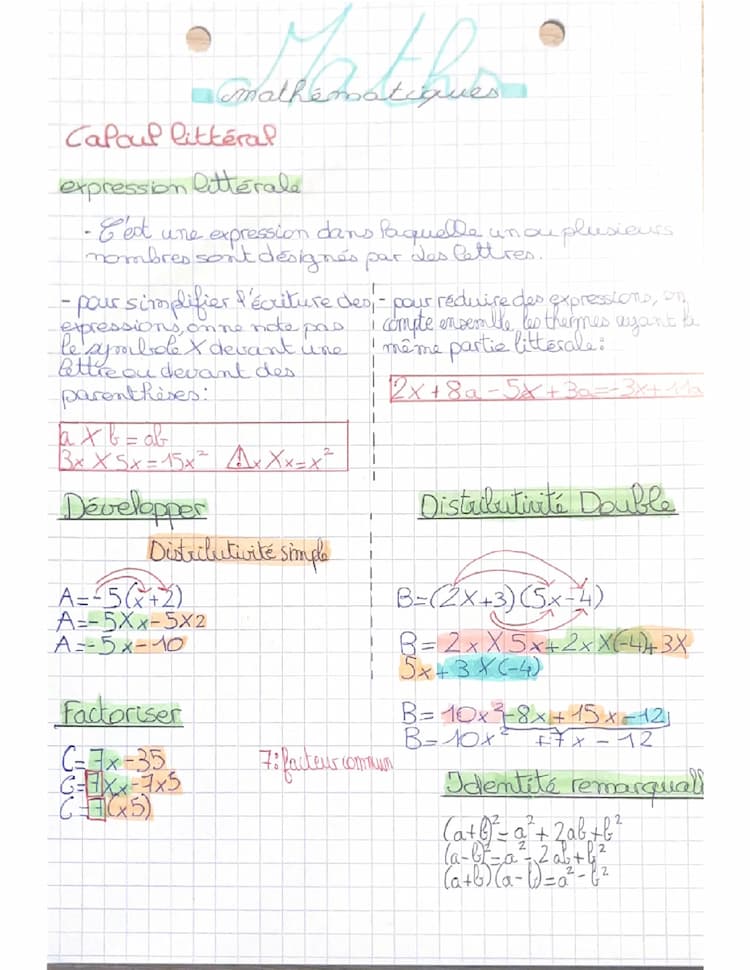 Maths
mathématiques
Calcul littéral
expression littérale
- C'est une expression dans laquelle un ou plusieurs
nombres sont désignés par des lettres.
- pour simplifier l'écriture des
expressions, on ne note pas
le symbole X devant une
lettre ou devant des
parenthèses:
a X b = ab
3x X 5x = 15x² ⚠ x X x = x²
- pour réduire des expressions, on
compte ensemble les thermes ayant la
même partie littérale:
2x + 8a - 5x + 3a = -3x + 11a
Développer
Distributivité simple
A = -5(x+2)
A = -5Xx - 5X2
A = -5x - 10
Factoriser
C = 7x - 35
C = 7Xx - 7x5
C = 7(x5)
7: facteur commun
Distributivité Double
B = (2x+3)(5x-4)
B = 2x X 5x + 2x X(-4) + 3X
5x + 3X(-4)
B = 10x² - 8x + 15x - 12
B = 10x² + 7x - 12
Identité remarquabl
(a+b)² = a² + 2ab + b²
(a-b)² = a² - 2ab + b²
(a+b)(a-b) = a² - b²